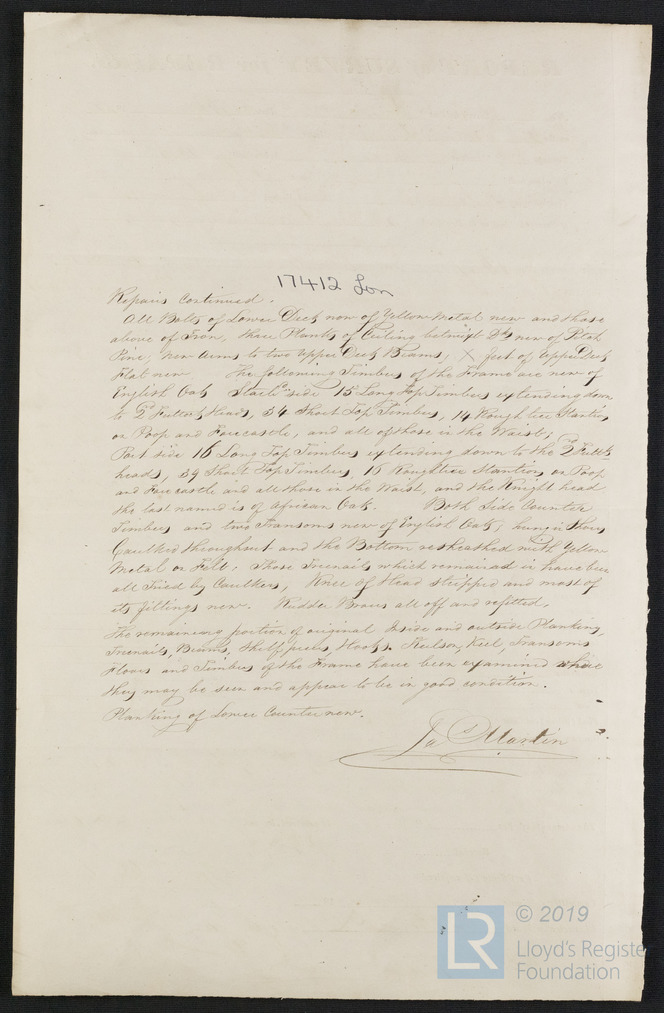 17412 Lon
Repairs Continued.
All Bolts of Lower Deck now of Yellow Metal new and those
above of Iron, three Planks of Ceiling betwixt Dks new of Pitch
Pine, New Arms to two Upper Deck Beams, X feet of Upper Deck
Flat new The following Timbers of the Frame are new of
English Oak Starbd side 15 Long Top Timbers extending down
to 2d Futtock Heads, 34 Short Top Timbers, 14 Rough tree Stantions
on Poop and Forecastle, and all of those in the Waist,
Port side 16 Long Top Timbers extending down to the 2d Futtk
heads, 39 Short Top Timbers, 15 Roughtree Stantions on Poop
and Forecastle and all those in the Waist, and the Knight head
the last named is of African Oak. Both Side Counter
Timbers and two Transoms new of English Oak,
Caulked throughout and the Bottom resheathed with Yellow
Metal on Felt; Those Treenails which remained in have been
all Tried by Caulkers, Knee of Head stripped and most of
its fittings new. Rudder Braces all off and refitted.
The remaining portion of original Inside and outside Planking,
Treenails, Beams, Shelfpieces, Hooks, Keelson, Keel, Transoms
Floors and Timbers of the Frame have been examined where
they may be seen and appear to be in good condition.
Planking of Lower Counter new.
Jas Martin
© 2019
LR
Lloyd's Registe
Foundation